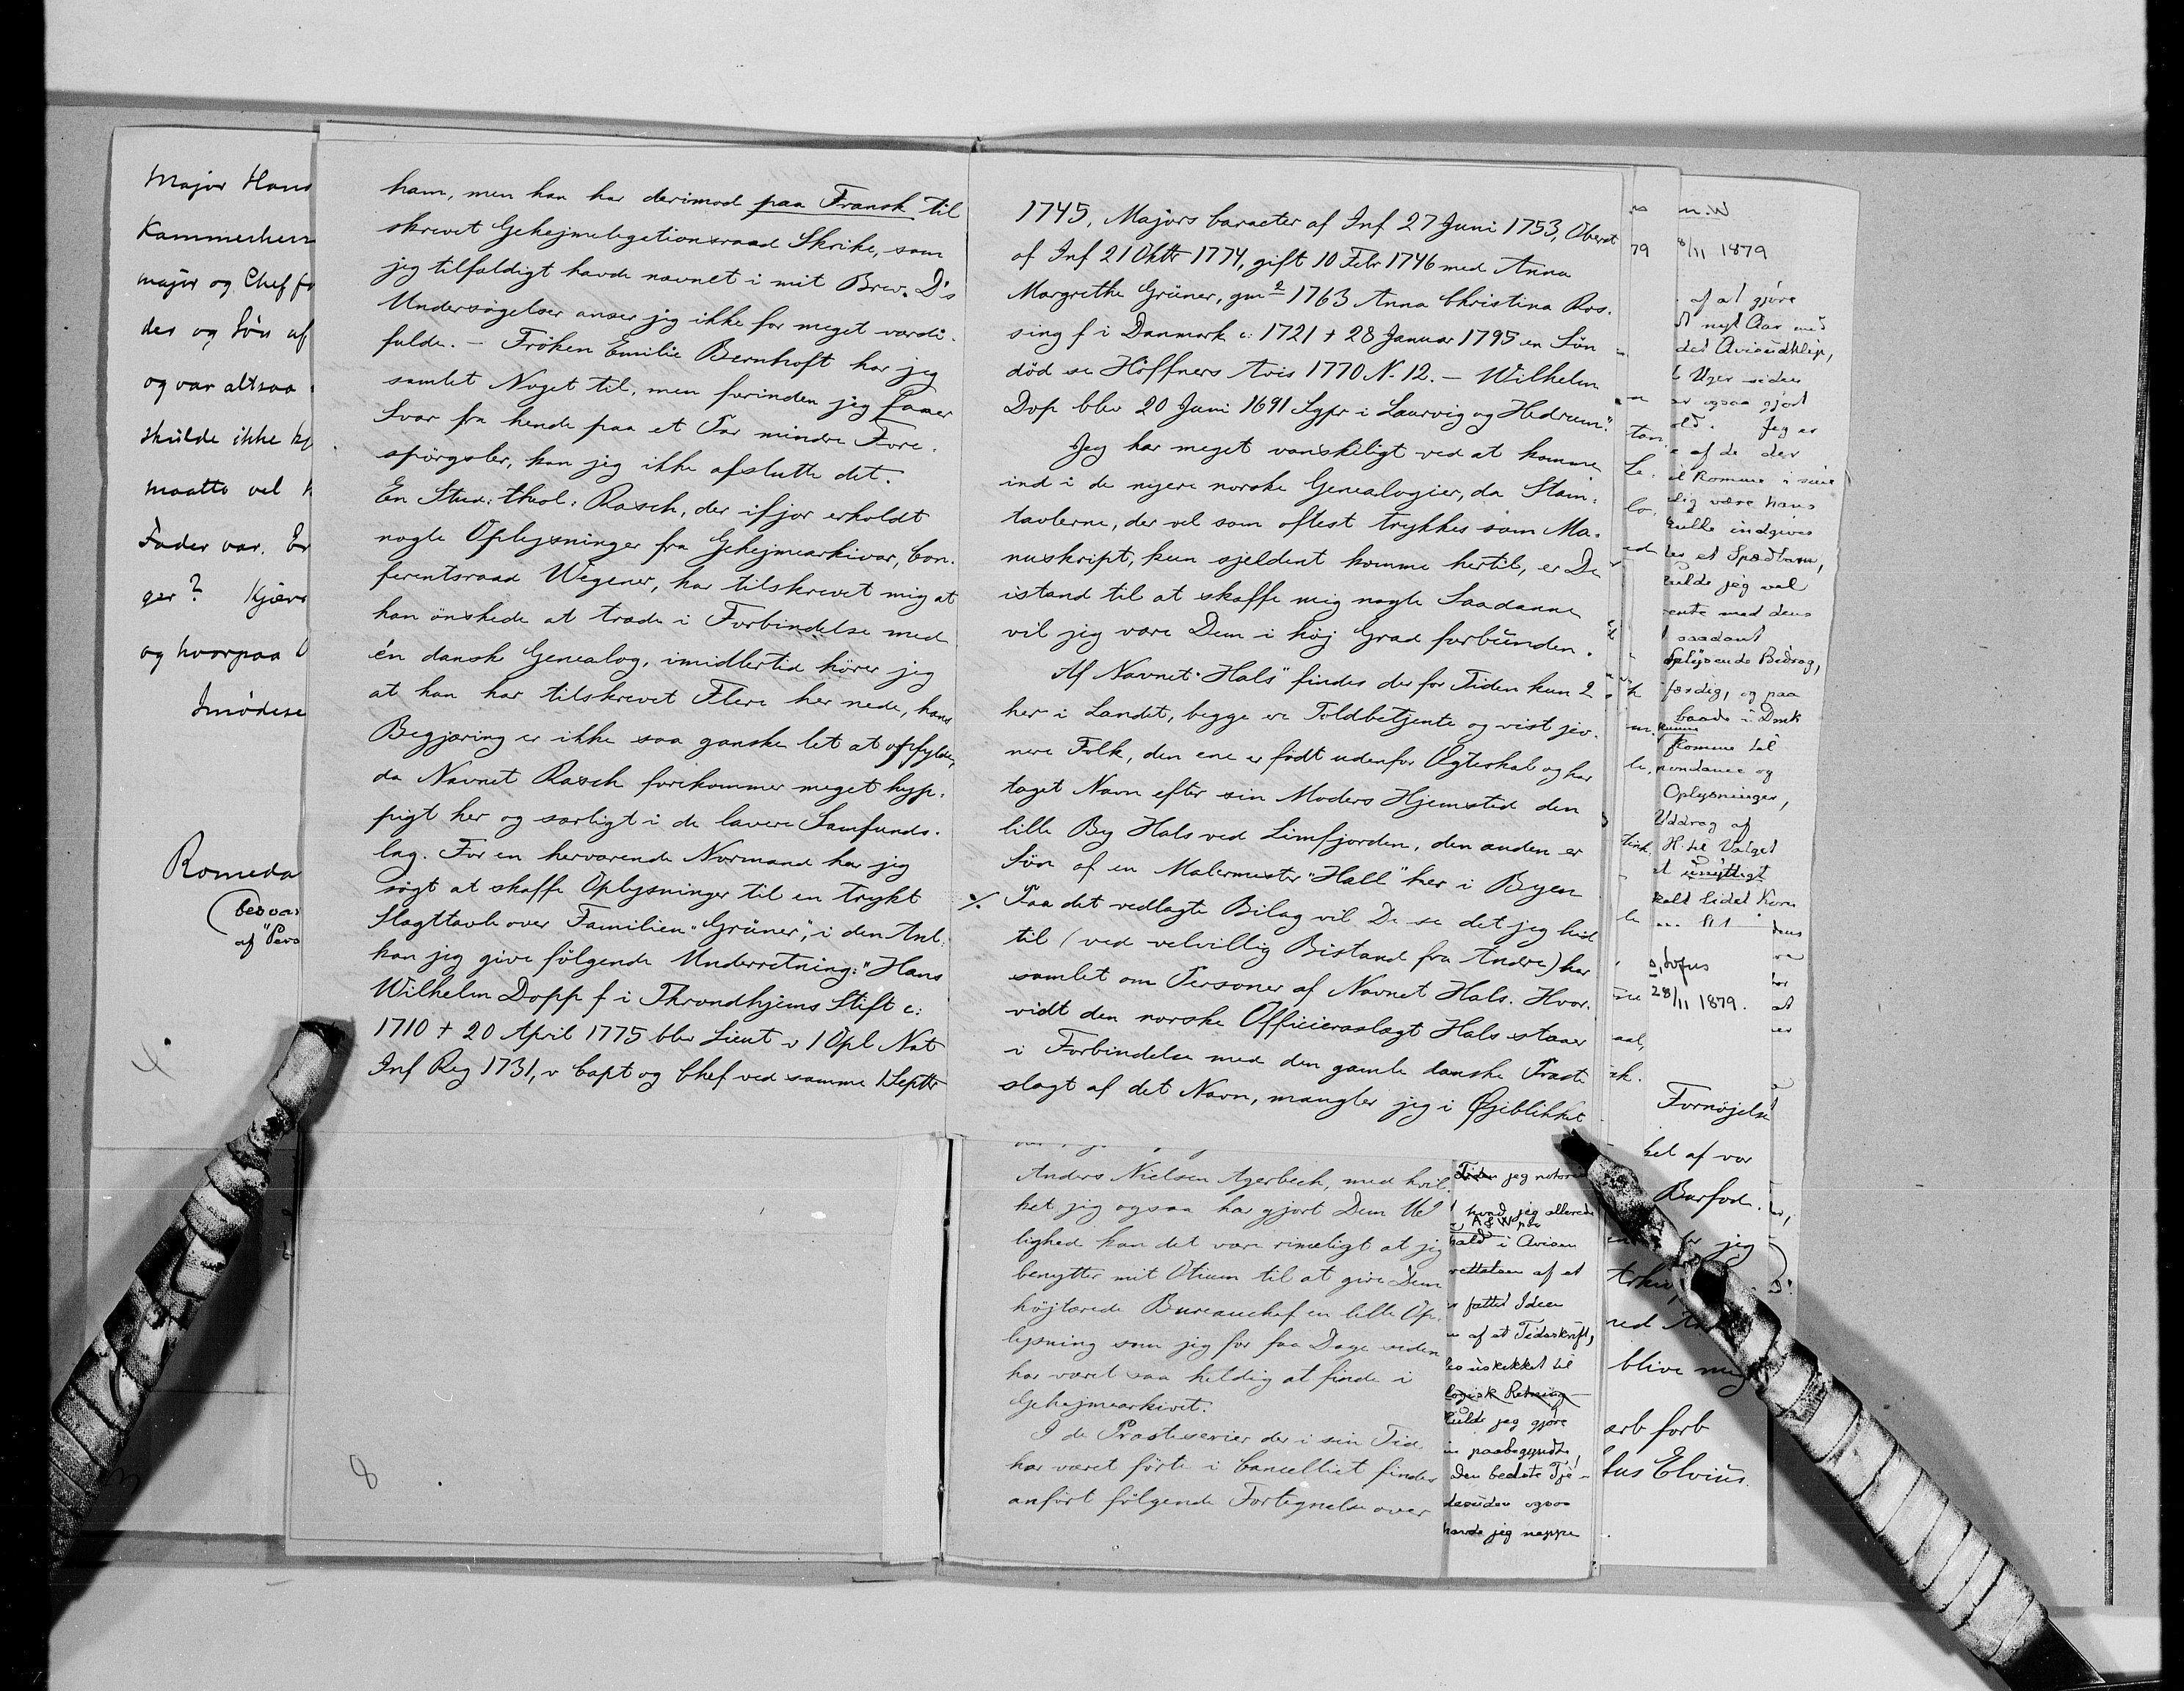 Major Hans
Kammerherr
major og Chef fo
der og Søn af
og var altsaa
skulde ikke
maatte vel
Fader var. Er
ger? Kjære
og hvorpaa
Imødese
Romeda
(bevar
af "Pers
ham, men han har derimod paa Fransk til
skrevet Gehejmelegationsraad Skrike, som
jeg tilfældigt havde nævnet i mit Brev. D's
Undersøgelser anser jeg ikke for meget værdi-
fulde. – Frøken Emilie Bernhoft har jeg
samlet Noget til, men forinden jeg faaer
Svar fra hende paa et Par mindre Fore-
spørgsler, kan jeg ikke afslutte det.
En Stud: theol: Rasch, der ifjor erholdt
nogle Oplysninger fra Gehejmearkivar, Con-
ferentsraad Wegener, har tilskrevet mig at
han ønskede at træde i Forbindelse med
én dansk Genealog, imidlertid hører jeg
at han har tilskrevet Flere her nede, hans
Begjæring er ikke saa ganske let at opfylde,
da Navnet Rasch forekommer meget hyp-
pigt her og særligt i de lavere Samfunds-
lag. For en herværende Normand har jeg
søgt at skaffe Oplysninger til en trykt
Slagttavle over Familien "Grüner", i den Anl:
kan jeg give følgende Underretning: "Hans
Wilhelm Dopp f i Throndhjems Stift c:
1710 + 20 April 1775 blev Lieut v 1 Opl Nat
Inf Reg 1731, v Capt og Chef ved samme 1 Septbr
8
1745, Majors Caracter af Inf 27 Juni 1753, Oberst
af Inf 21 Oktbr 1774, gift 10 Febr 1746 med Anna
Margrethe Grüner, gm 2 1763 Anna Christina Ros-
sing f i Danmark c: 1721 + 28 Januar 1795 en Søn
død se Höffners Avis 1770 N. 12. – Wilhelm
Dop blev 20 Juni 1691 Sgpr i Laurvig og Hedrum".
Jeg har meget vanskeligt ved at komme
ind i de nyere norske Genealogier, da Stam-
tavlerne, der vel som oftest trykkes som Ma-
nuskript, kun sjeldent komme hertil, er De
istand til at skaffe mig nogle Saadanne
vil jeg være Dem i høj Grad forbunden.
Af Navnet "Hals" findes der for Tiden kun 2
her i Landet, begge ere Toldbetjente og vist jev-
nere Folk, den ene er født udenfor Ægteskab og har
taget Navn efter sin Moders Hjemsted den
lille By Hals ved Limfjorden, den anden er
Søn af en Malermester "Hall" her i Byen
%. Paa det vedlagte Bilag vil De se det jeg hid
til (ved velvillig Bistand fra Andre) har
samlet om Personer af Navnet Hals. Hvor-
vidt den norske Officiersslægt Hals staaer
i Forbindelse med den gamle danske Præste
slægt af det Navn, mangler jeg i Øjeblikket
Anders Nielsen Agerbech, med hvil-
ket jeg ogsaa har gjort Dem Ulei
lighed kan det være rimeligt at jeg
benytter mit Otium til at give Dem
højtærede Bureauchef en lille Op-
lysning som jeg for faa Dage siden
har været saa heldig at finde i
Gehejmearkivet.
I de Præsteserier der i sin Tid
har været førte i Cancelliet findes
anført følgende Fortegnelse over
Tiden jeg
hvad jeg allerede
i Avisen
af et
fattet Ideen
af et Tidsskrift,
uskikket til
logisk Retning
kulde jeg gjøre
paabegyndte
Den bedste Tje-
desuden ogsaa
havde jeg neppe
n.W
8/11 1879
af at gjøre
nyt Aar med
det Avisudklip,
Uger siden
ogsaa gjort
old. Jeg er
af de der
Komme i sine
elig være hans
kulle indgives
et Spædbarn,
kulde jeg vel
ente med dens
saadant
oplysende Bidrag,
færdig, og paa
baade i Dmk
kunne
komme til
pondance og
Oplysninger,
Uddrag af
H. til Valget
unyttigt
kalt lidet Kom
s, Sofus
28/11 1879.
Fornøjelse
ket af vor
Barfod.
jeg
blive mig
ærb forb
fus Elvius.